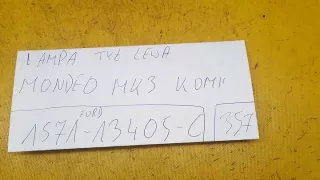 LAMPA TYŁ LEWA
MONDEO MK3 KOMBI
FORD
1S71-13405-C 357